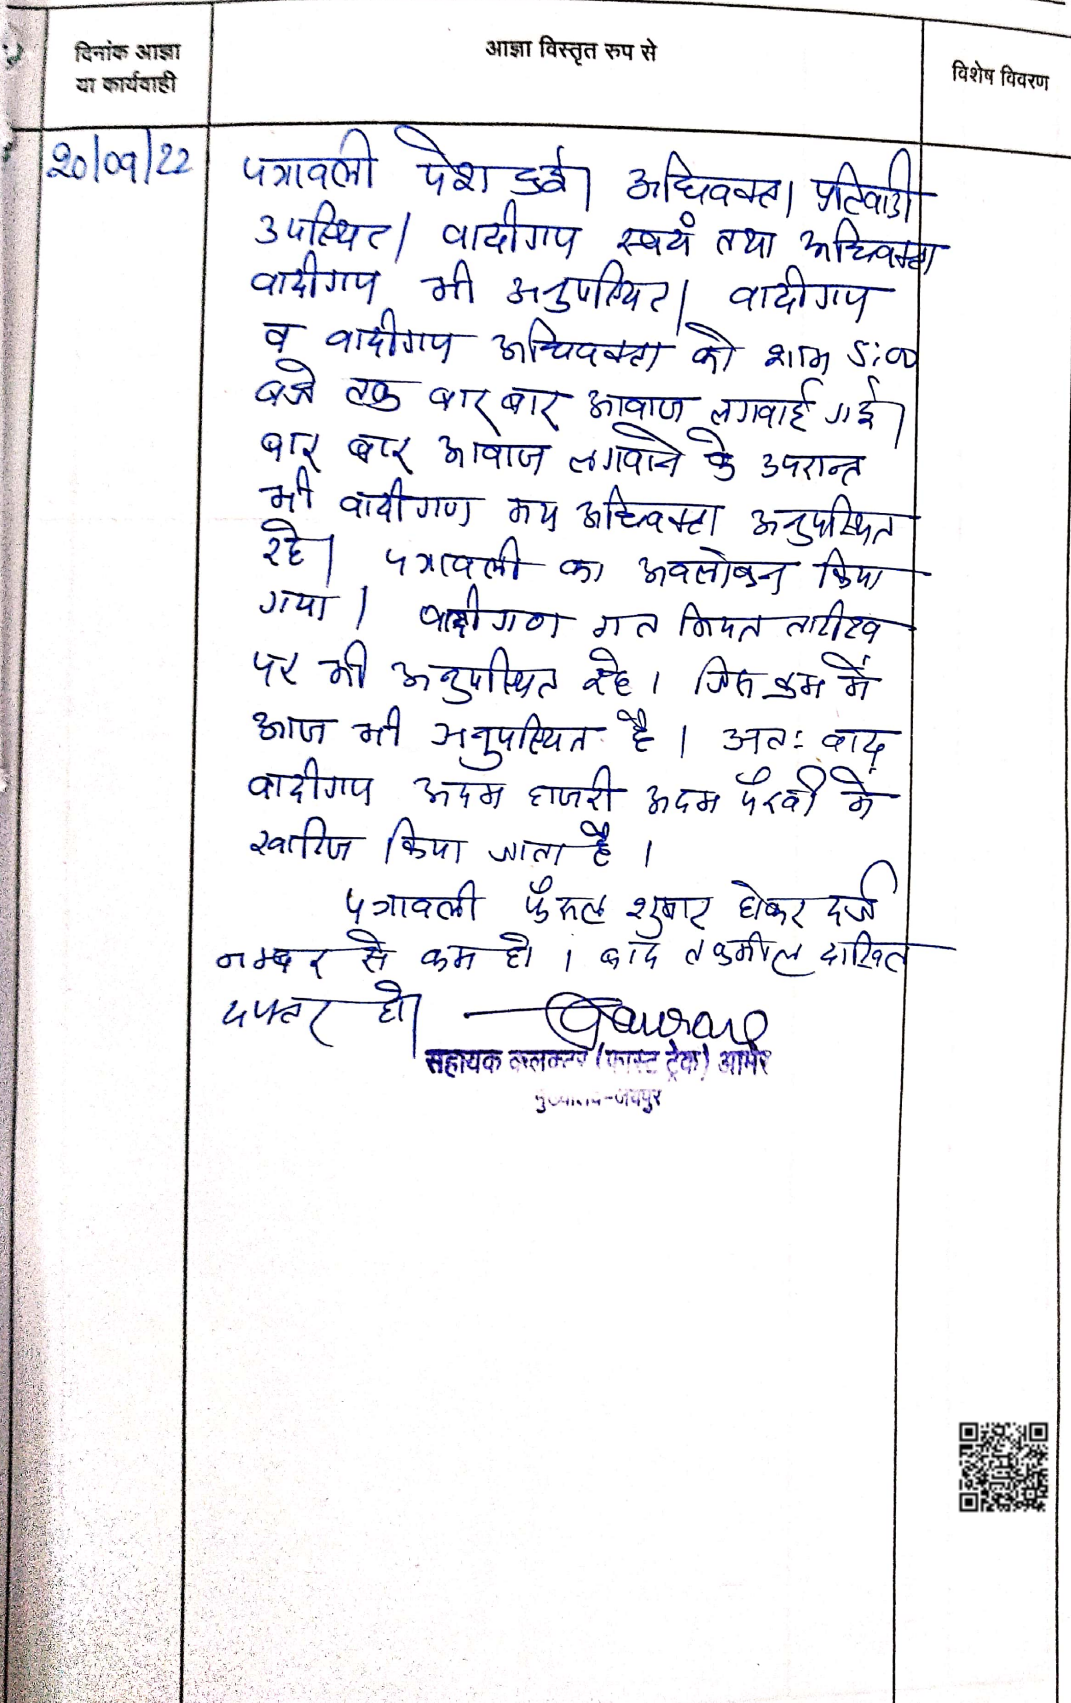 दिनांक आज्ञा
या कार्यवाही
आज्ञा विस्तृत रुप से
विशेष विवरण
20/09/22
पत्रावली पेश हुई। अधिवक्ता प्रतिवादी
उपस्थित। वादीगण स्वयं तथा अधिवक्ता
वादीगण भी अनुपस्थित। वादीगण
व वादीगण अधिवक्ता को शाम 5:00
बजे तक बार बार आवाज लगवाई गई।
बार बार आवाज लगवाने के उपरान्त
भी वादीगण मय अधिवक्ता अनुपस्थित
रहे। पत्रावली का अवलोकन किया
गया। वादीगण गत नियत तारीख
पर भी अनुपस्थित रहे। जिस क्रम में
आज भी अनुपस्थित है। अतः वाद
वादीगण अदम हाजरी अदम पैरवी में
खारिज किया जाता है।
पत्रावली फैसल शुमार होकर दर्ज
नम्बर से कम हो। बाद तकमील दाखिल
दफ्तर हो।
सहायक कलक्टर (फास्ट ट्रेक) आमेर
जयपुर